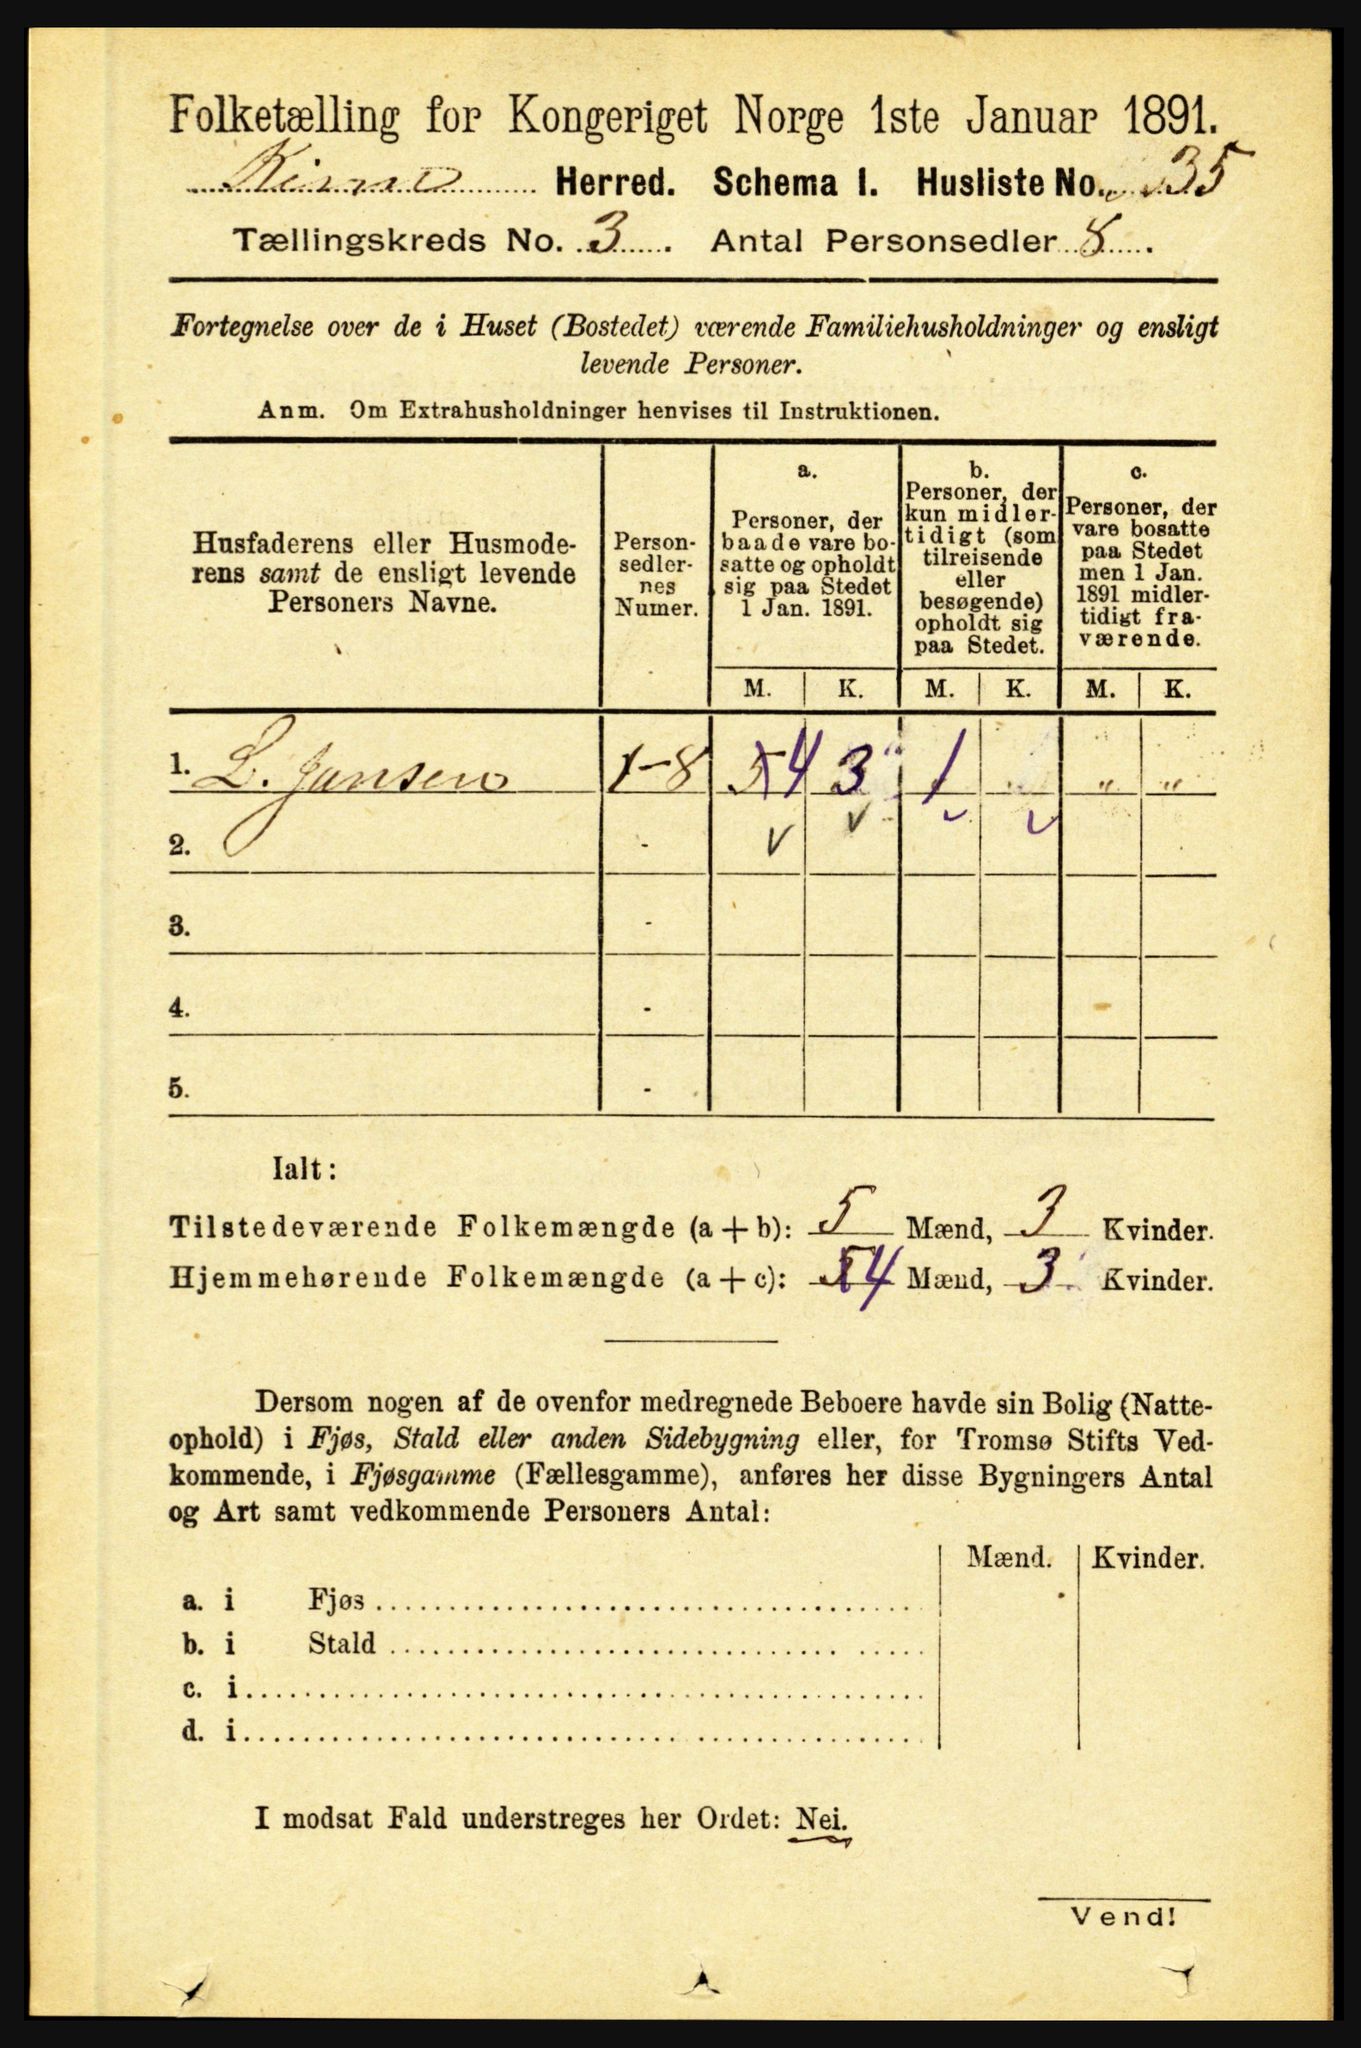 Folketælling for Kongeriget Norge 1ste Januar 1891.
Kinn Herred. Schema I. Husliste No. 35
Tællingskreds No. 3. Antal Personsedler 8.
Fortegnelse over de i Huset (Bostedet) værende Familiehusholdninger og ensligt
levende Personer.
Anm. Om Extrahusholdninger henvises til Instruktionen.
Husfaderens eller Husmode-
rens samt de ensligt levende
Personers Navne.
Person-
sedler-
nes
Numer.
a.
Personer, der
baade vare bo-
satte og opholdt
sig paa Stedet
1 Jan. 1891.
b.
Personer, der
kun midler-
tidigt (som
tilreisende
eller
besøgende)
opholdt sig
paa Stedet.
c.
Personer, der
vare bosatte
paa Stedet
men 1 Jan.
1891 midler-
tidigt fra-
værende.
M. K. M. K. M. K.
1. L. Jansen 1-8 5 4 3 1 " " "
2. -
3. -
4. -
5. -
Ialt:
Tilstedeværende Folkemængde (a + b): 5 Mænd, 3 Kvinder.
Hjemmehørende Folkemængde (a + c): 5 4 Mænd, 3 Kvinder.
Dersom nogen af de ovenfor medregnede Beboere havde sin Bolig (Natte-
ophold) i Fjøs, Stald eller anden Sidebygning eller, for Tromsø Stifts Ved-
kommende, i Fjøsgamme (Fællesgamme), anføres her disse Bygningers Antal
og Art samt vedkommende Personers Antal:
Mænd. Kvinder.
a. i Fjøs
b. i Stald
c. i
d. i
I modsat Fald understreges her Ordet: Nei.
Vend!